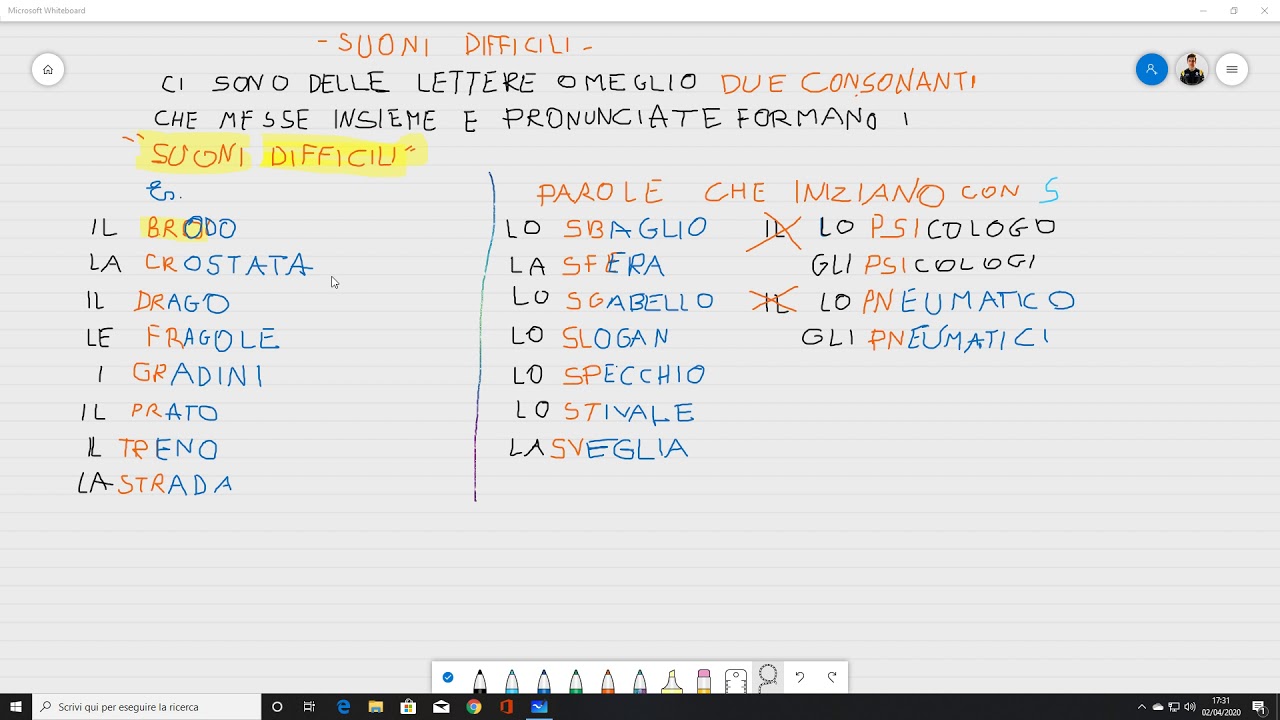 Microsoft Whiteboard
- SUONI DIFFICILI -
CI SONO DELLE LETTERE O MEGLIO DUE CONSONANTI
CHE MESSE INSIEME E PRONUNCIATE FORMANO I
"SUONI DIFFICILI"
Es.
IL BRODO
LA CROSTATA
IL DRAGO
LE FRAGOLE
I GRADINI
IL PRATO
IL TRENO
LA STRADA
PAROLE CHE INIZIANO CON S
LO SBAGLIO
LA SFERA
LO SGABELLO
LO SLOGAN
LO SPECCHIO
LO STIVALE
LA SVEGLIA
IL LO PSICOLOGO
GLI PSICOLOGI
IL LO PNEUMATICO
GLI PNEUMATICI
Scrivi qui per eseguire la ricerca
17:31
02/04/2020